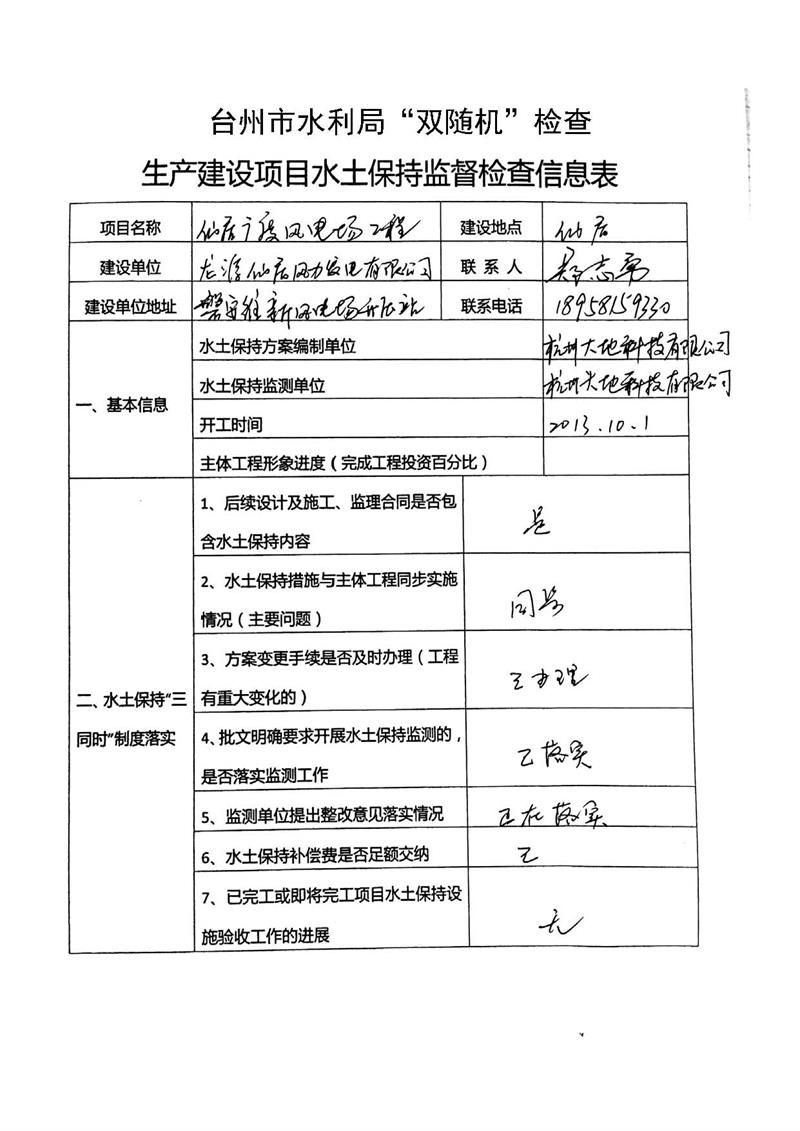 台州市水利局“双随机”检查
生产建设项目水土保持监督检查信息表
项目名称 仙居广度风电场工程 建设地点 仙居
建设单位 龙源仙居风力发电有限公司 联系人
建设单位地址 风电场升压站 联系电话 18958159330
一、基本信息
水土保持方案编制单位 杭州大地科技有限公司
水土保持监测单位 杭州大地科技有限公司
开工时间 2013.10.1
主体工程形象进度(完成工程投资百分比)
二、水土保持“三
同时”制度落实
1、后续设计及施工、监理合同是否包
含水土保持内容
是
2、水土保持措施与主体工程同步实施
情况(主要问题)
同步
3、方案变更手续是否及时办理(工程
有重大变化的)
已办理
4、批文明确要求开展水土保持监测的,
是否落实监测工作
已落实
5、监测单位提出整改意见落实情况 正在落实
6、水土保持补偿费是否足额交纳 已
7、已完工或即将完工项目水土保持设
施验收工作的进展
无